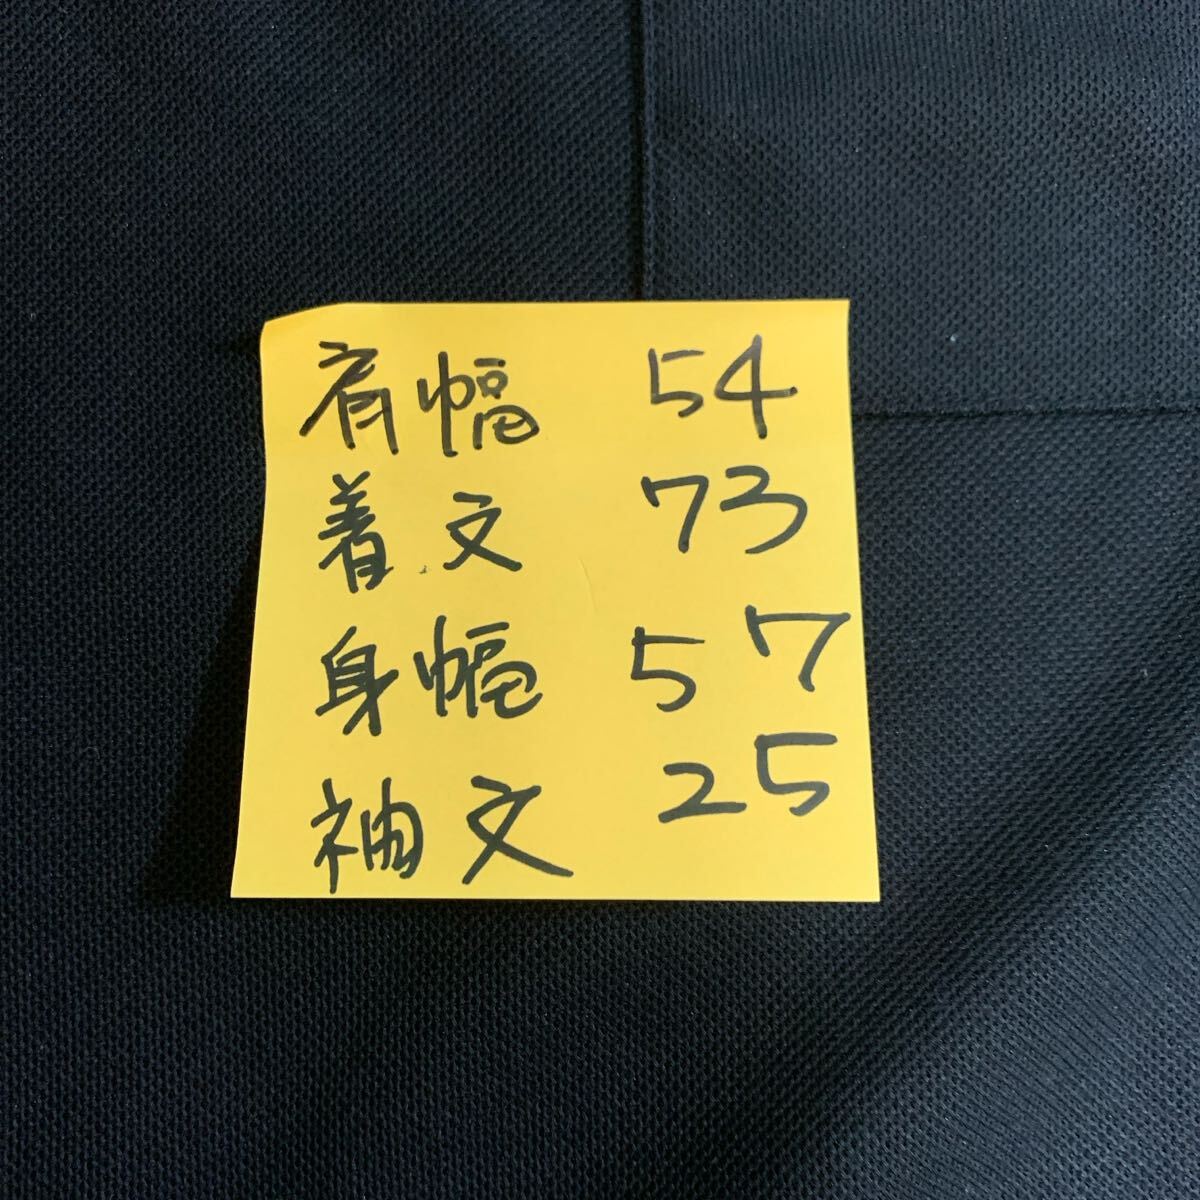 肩幅 54
着文 73
身幅 57
袖文 25